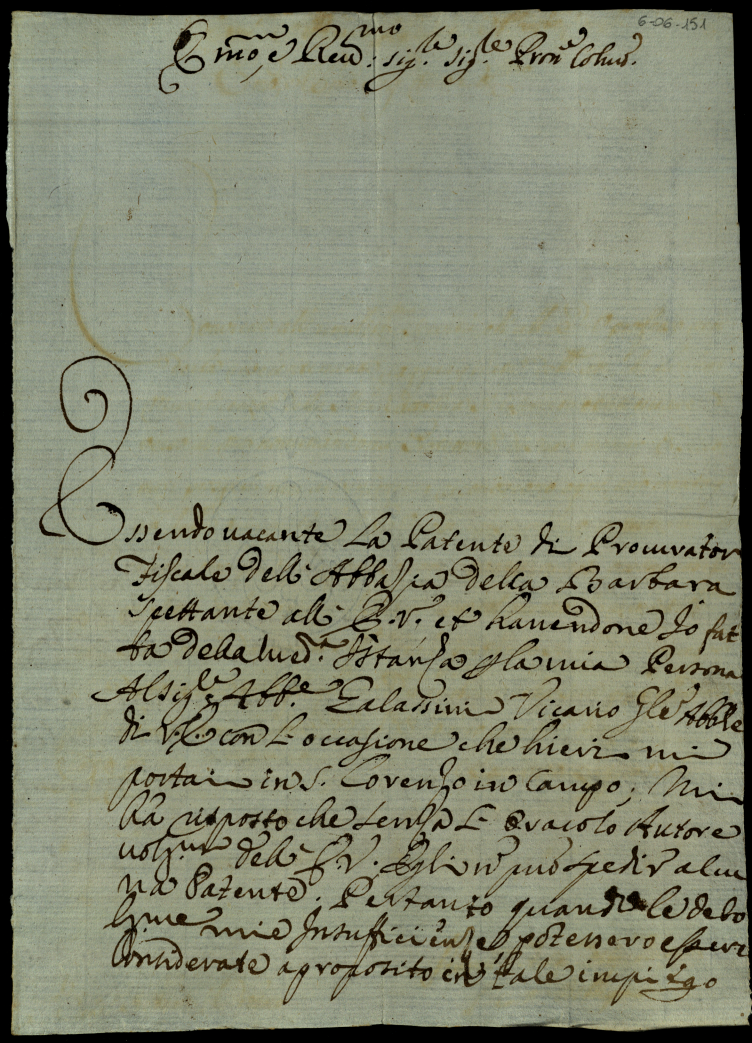 6-06-151
Emo, e Reud.mo sig.le sig.le Pron.e Colmo.
Essendo uacante La Patente di Procurator
Fiscale dell' Abbazia della Barbara
spettante all' E.V. et hauendone Io fat
ta della med.a Istanza p la mia Persona
Al sig.le Abb.e Galassini Vicario Gle Abble
di V.E. con l' occasione che hieri mi
portai in S. Lorenzo in Campo; Mi
ha risposto che senza l' Oracolo Autore
uoliss.mo dell' E.V. Egli n può spedir alcu
na Patente. Pertanto quando le debo
liss.me mie Insufficienze potessero esseri
Considerate a proposito in tale impiego